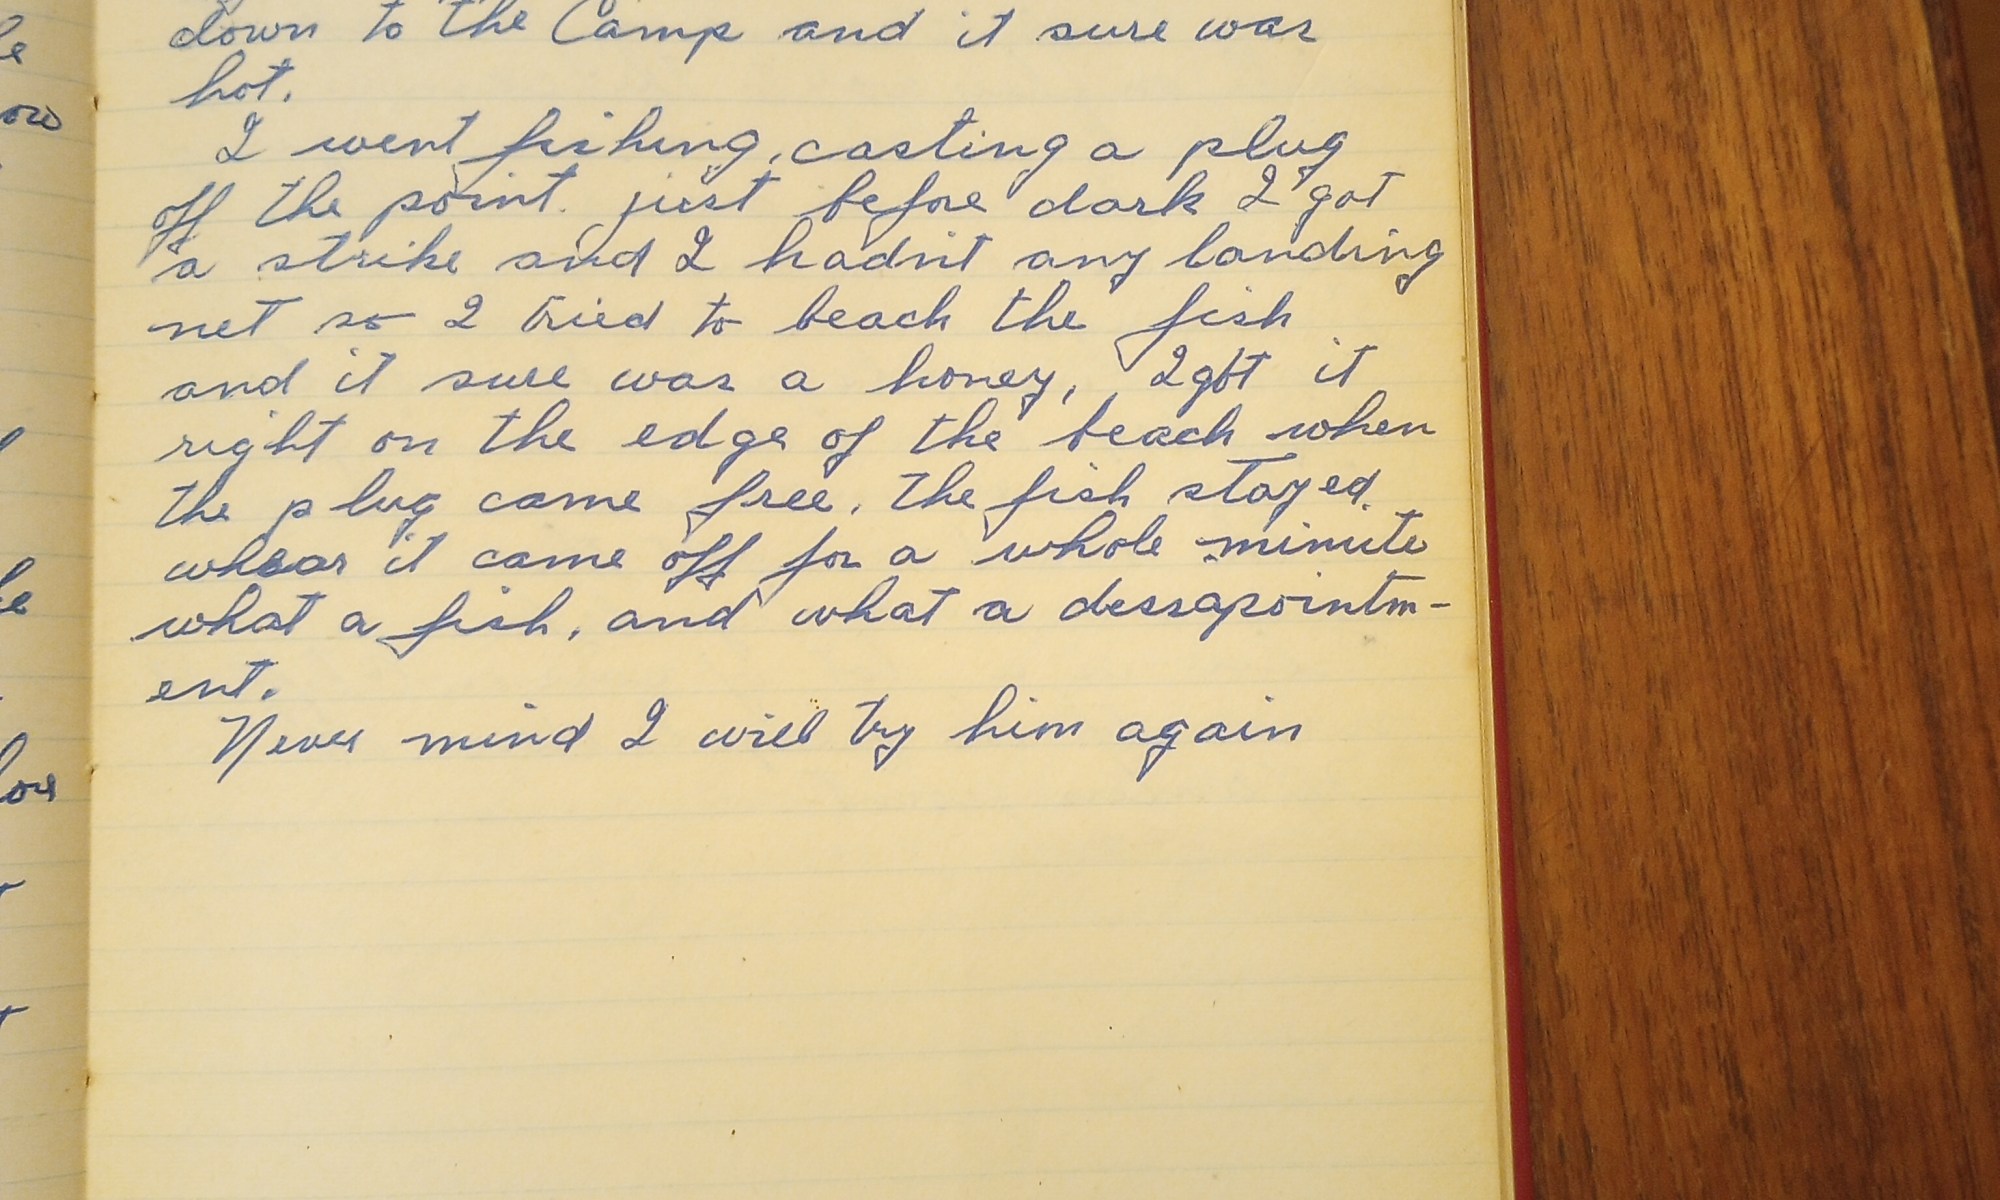 down to the Camp and it sure was
hot.
I went fishing, casting a plug
off the point. just before dark I got
a strike and I hadn't any landing
net so I tried to beach the fish
and it sure was a honey, I got it
right on the edge of the beach when
the plug came free. the fish stayed
whear it came off for a whole minute
what a fish, and what a dessapointm-
ent.
Never mind I will try him again